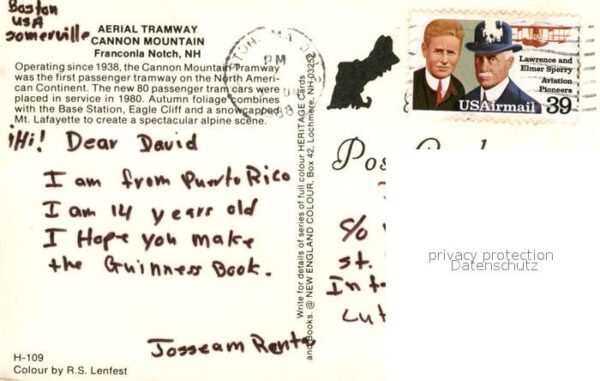 Boston
USA
Somerville
AERIAL TRAMWAY
CANNON MOUNTAIN
Franconia Notch, NH
Operating since 1938, the Cannon Mountain Tramway
was the first passenger tramway on the North Ameri-
can Continent. The new 80 passenger tram cars were
placed in service in 1980. Autumn foliage combines
with the Base Station, Eagle Cliff and a snowcapped
Mt. Lafayette to create a spectacular alpine scene.
¡Hi! Dear David
I am from Puerto Rico
I am 14 years old
I Hope you make
the Guinness Book.
Josseam
H-109
Colour by R.S. Lenfest
Write for details of series of full colour HERITAGE Cards
and Books. @ NEW ENGLAND COLOUR, Box 42, Lochmere, NH 03252
PM
Lawrence and
Elmer Sperry
Aviation
Pioneers
USAirmail 39
Pos
c/o
st.
Int
Lut
privacy protection
Datenschutz